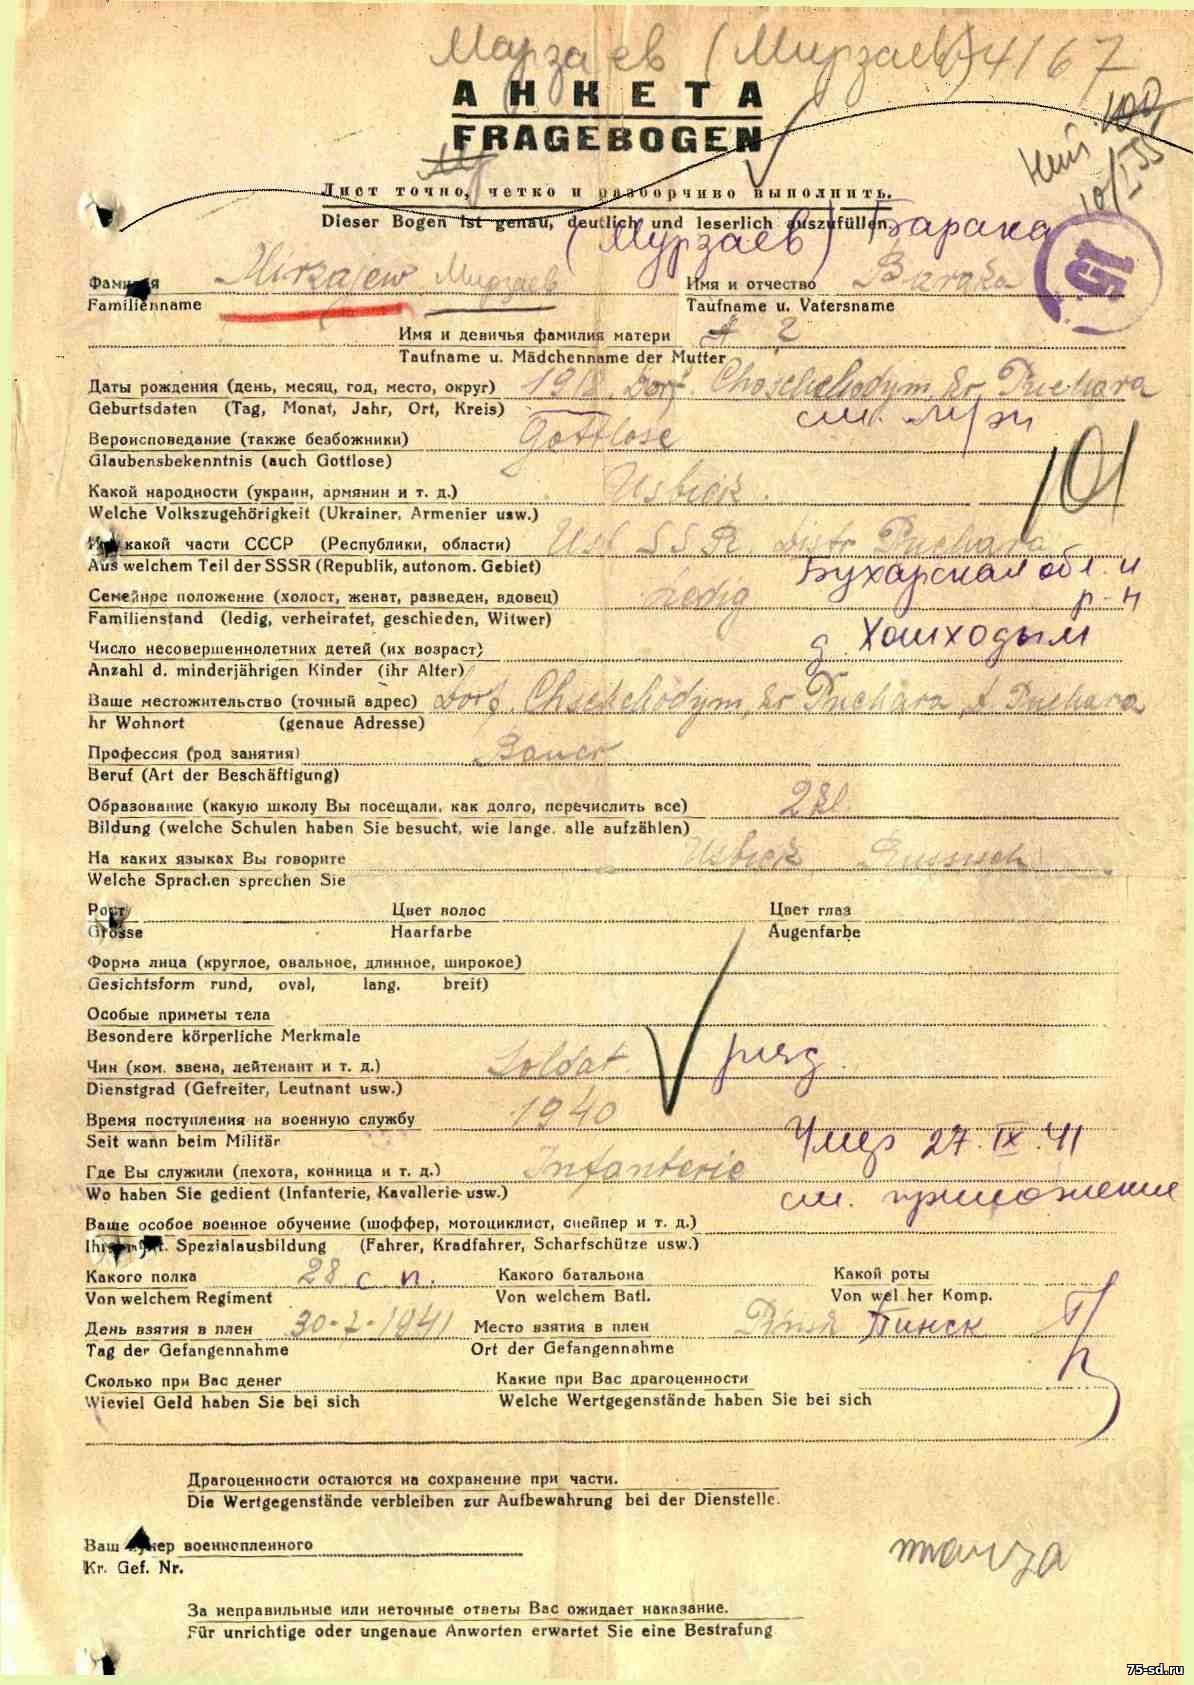 Марзаев (Мирзаев) 4167
АНКЕТА
FRAGEBOGEN
100
10/I 55
Лист точно, четко и разборчиво выполнить.
Dieser Bogen ist genau, deutlich und leserlich auszufüllen.
(Мурзаев) Барака
15
Фамилия Mirzajew Мирзаев Имя и отчество Baraka
Familienname Taufname u. Vatersname
Имя и девичья фамилия матери ?
Taufname u. Mädchenname der Mutter
Даты рождения (день, месяц, год, место, округ) 1918 Dorf. Choschchodym, Kr Buchara
Geburtsdaten (Tag, Monat, Jahr, Ort, Kreis) см.
Вероисповедание (также безбожники) Gottlose
Glaubensbekenntnis (auch Gottlose)
101
Какой народности (украин, армянин и т. д.) Usbick.
Welche Volkszugehörigkeit (Ukrainer, Armenier usw.)
Из какой части СССР (Республики, области) Usb SSR. distr Buchara
Aus welchem Teil der SSSR (Republik, autonom. Gebiet) Бухарская обл. и
Семейное положение (холост, женат, разведен, вдовец) Ledig р-н
Familienstand (ledig, verheiratet, geschieden, Witwer)
д. Хошходым
Число несовершеннолетних детей (их возраст)
Anzahl d. minderjährigen Kinder (ihr Alter)
Ваше местожительство (точный адрес) Dorf. Chschchodym, Kr Buchara, d Buchara
hr Wohnort (genaue Adresse)
Профессия (род занятия) Bauer
Beruf (Art der Beschäftigung)
Образование (какую школу Вы посещали, как долго, перечислить все) 2 kl
Bildung (welche Schulen haben Sie besucht, wie lange, alle aufzählen)
На каких языках Вы говорите Usbick Russisch
Welche Sprachen sprechen Sie
Рост Цвет волос Цвет глаз
Grösse Haarfarbe Augenfarbe
Форма лица (круглое, овальное, длинное, широкое)
Gesichtsform rund, oval, lang, breit)
Особые приметы тела
Besondere körperliche Merkmale
Чин (ком. звена, лейтенант и т. д.) Soldat. ряд.
Dienstgrad (Gefreiter, Leutnant usw.)
Время поступления на военную службу 1940
Seit wann beim Militär Умер 27.IX.41
Где Вы служили (пехота, конница и т. д.) Infanterie
Wo haben Sie gedient (Infanterie, Kavallerie usw.) см. приложение
Ваше особое военное обучение (шоффер, мотоциклист, снейпер и т. д.)
Spezialausbildung (Fahrer, Kradfahrer, Scharfschütze usw.)
Какого полка 28 с.п. Какого батальона Какой роты
Von welchem Regiment Von welchem Batl. Von wel her Komp.
День взятия в плен 30-7-1941 Место взятия в плен Pinsk Пинск
Tag der Gefangennahme Ort der Gefangennahme
Сколько при Вас денег Какие при Вас драгоценности
Wieviel Geld haben Sie bei sich Welche Wertgegenstände haben Sie bei sich
Драгоценности остаются на сохранение при части.
Die Wertgegenstände verbleiben zur Aufbewahrung bei der Dienstelle.
Ваш нумер военнопленного
Kr. Gef. Nr.
За неправильные или неточные ответы Вас ожидает наказание.
Für unrichtige oder ungenaue Anworten erwartet Sie eine Bestrafung
75-sd.ru